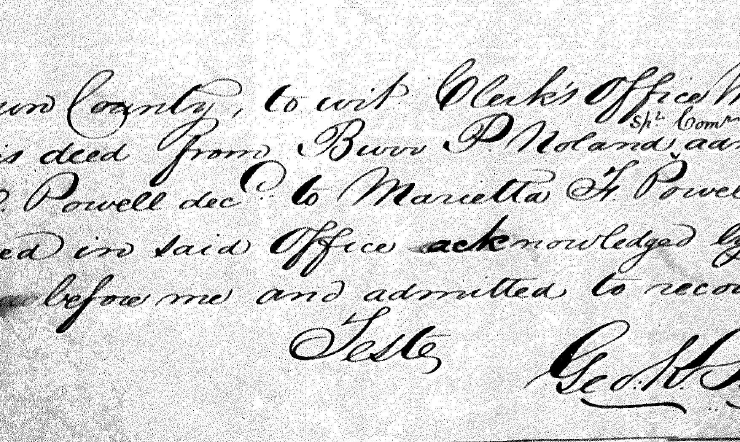 County, to wit Clerk's Office
deed from Burr P Noland Spl. Comr
Powell decd. to Marietta F. Powel
in said Office acknowledged by
before me and admitted to recor
Teste
Geo. K.